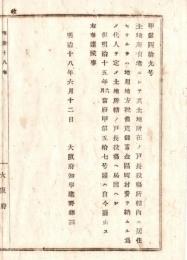 甲第四拾九号
土地所有者ニシテ其土地所在ノ戸長役場所轄内ニ居住
セサルモノハ地租地方税備荒儲蓄金区町村費ヲ納ムル為
メ代人ヲ定メ土地所轄ノ戸長役場ヘ届出ヘシ
但明治十五年六月当府甲第五拾七号達ハ自今廃止ス
右布達候事
明治十八年六月十二日
大阪府知事建野郷三
大阪府